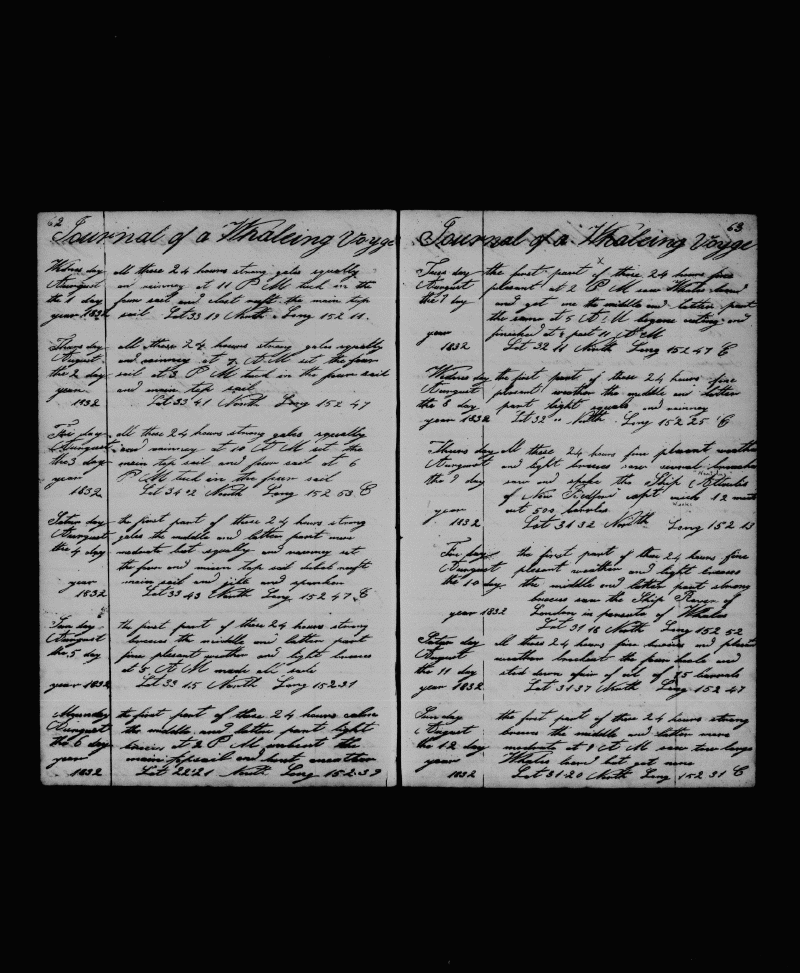 62
Journal of a Whaleing Voyge
Wednes day all these 24 hours strong gales squally
Aungust and rainney at 11 P M tuck in the
the 1 day four sail and clost reeft the main top
year 1832 sail Lat 33 19 North Long 152 11
Thurs day all these 24 hours strong gales squally
August and rainney at 7 A M set the four
the 2 day sail at 3 P M tuck in the four sail
year and main tock sail
1832 Lat 33 41 North Long 152 47
Fri day all these 24 hours strong gales squally
Aungust and rainney at 10 A M set the
the 3 day main top sail and four sail at 6
year P M tuck in the four sail
1832 Lat 34 02 North Long 152 53 E
Satur day the first part of these 24 hours strong
Aungust gales the middle and latter part more
the 4 day moderate but squally and rainney set
the four and misen top sail dubel reeft
year main sail and jibe and spanker
1832 Lat 33 43 North Long 152 47 E
Sun day the first part of these 24 hours strong
Aungust breeses the middle and latter part
the 5 day fine plesent weather and light breeses
at 5 A M made all sail
year 1832 Lat 33 15 North Long 152 31
Mon day the first part of these 24 hours calm
Aungust the middle and latter part light
the 6 day breeses at 2 P M unbent the
year main topsail and bent another
1832 Lat 22 21 North Long 152 39
63
Journal of a Whaleing Voyge
Tues day the first part of these 24 hours fine
Aungust plesent at 2 P M saw Whales lowerd
the 7 day and got one the middle and latter part
the same at 5 A M began cuting and
year finished at 11 A M
1832 Lat 32 11 North Long 152 47 E
Wednes day the first part of these 24 hours fine
Aungust plesent weather the middle and latter
the 8 day part light squals and rainney
year 1832 Lat 32 " North Long 152 25 E
Thurs day all these 24 hours fine plesent weather
Aungust and light breeses saw several humpbacks
the 9 day saw and spoke the Ship
of New Bedford capt 12 months
year out 500 barels
1832 Lat 31 32 North Long 152 13
Fri day the first part of these 24 hours fine
Aungust plesent weather and light breeses
the 10 day the middle and latter part strong
breeses saw the Ship of
year 1832 London in persute of Whales
Lat 31 18 North Long 152 52
Satur day all these 24 hours fine breeses and plesent
August weather brockout the four hole and
the 11 day sted down of oil of 75 barrels
year 1832 Lat 31 37 North Long 152 47
Sun day the first part of these 24 hours strong
Aungust breeses the middle and latter more
the 12 day moderate at 1 A M saw two large
year Whales lowerd but got none
1832 Lat 31 20 North Long 152 31 E